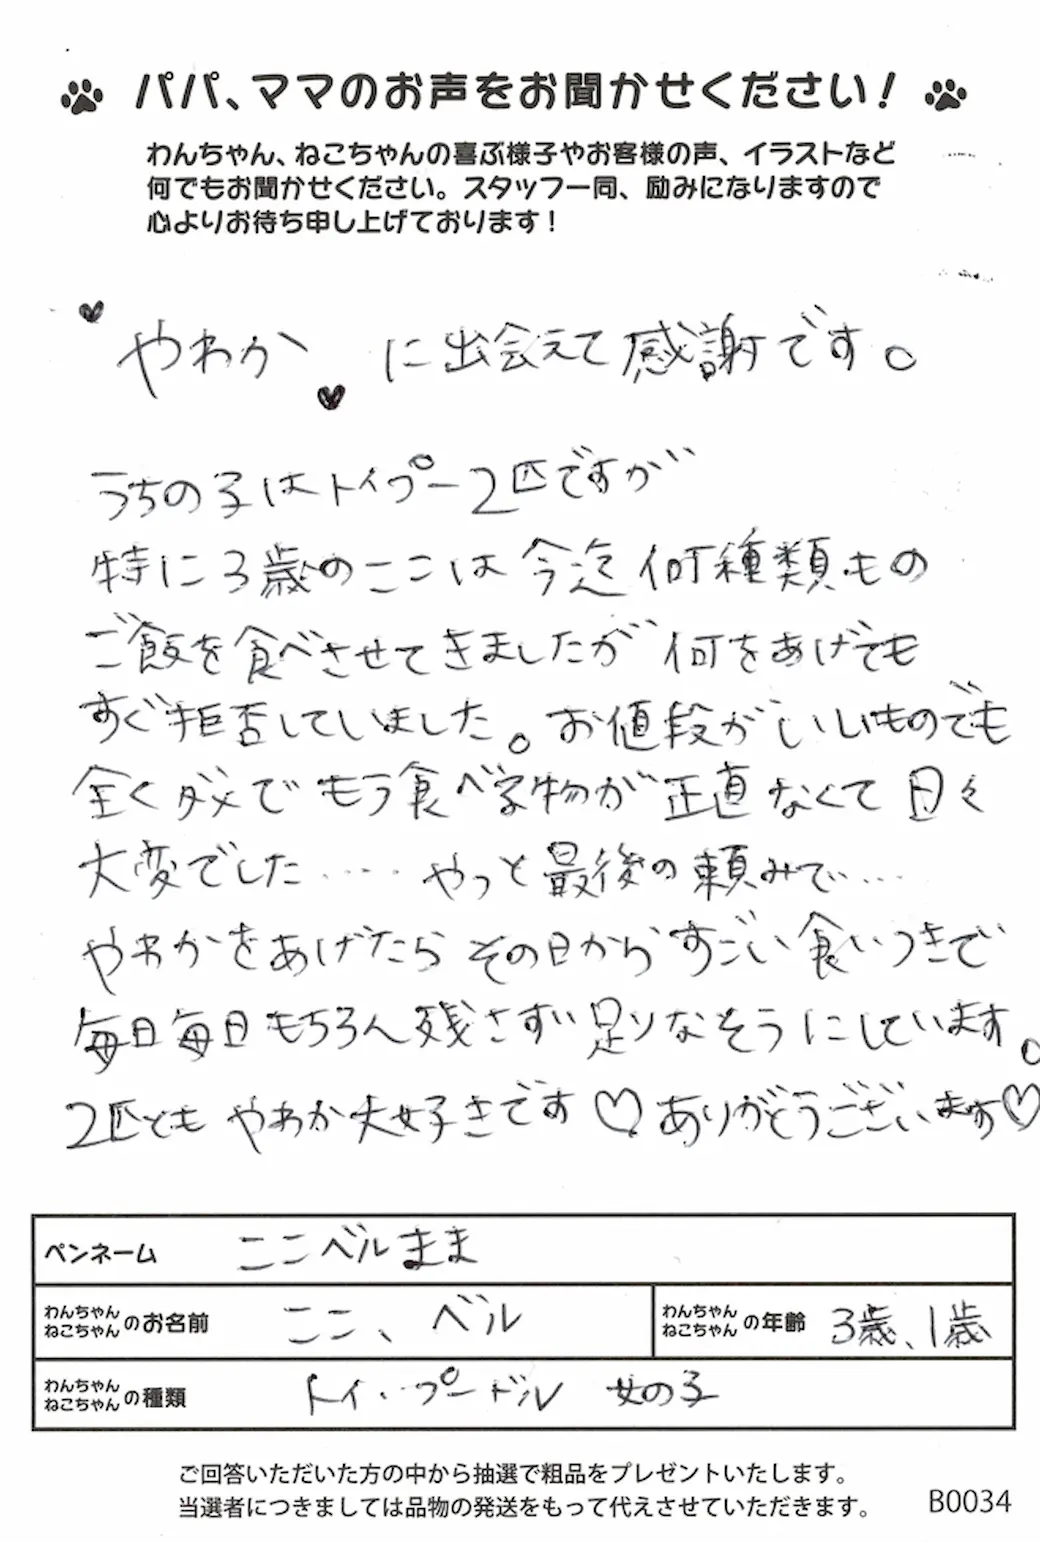 パパ、ママのお声をお聞かせください！
わんちゃん、ねこちゃんの喜ぶ様子やお客様の声、イラストなど
何でもお聞かせください。スタッフ一同、励みになりますので
心よりお待ち申し上げております！
やわか に出会えて感謝です。
うちの子はトイプー2匹ですが
特に3歳のここは今迄何種類もの
ご飯を食べさせてきましたが何をあげても
すぐ拒否していました。お値段がいいものでも
全くダメでもう食べ物が正直なくて日々
大変でした…‥やっと最後の頼みで…‥
やわかをあげたらその日からすごい食いつきで
毎日毎日もちろん残さず足りなそうにしています。
2匹ともやわか大好きです♡ありがとうございます♡
ペンネーム ここベルまま
わんちゃん ねこちゃん のお名前 ここ、ベル
わんちゃん ねこちゃん の年齢 3歳、1歳
わんちゃん ねこちゃん の種類 トイ・プードル 女の子
ご回答いただいた方の中から抽選で粗品をプレゼントいたします。
当選者につきましては品物の発送をもって代えさせていただきます。
B0034